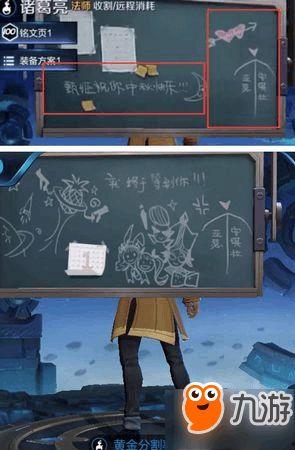 诸葛亮 法师 收割/远程消耗
100 铭文页1
装备方案1
甄姬祝你中秋快乐!!!
亚瑟
安琪拉
我终于等到你!!!
亚瑟
安琪拉
1
黄金分割
九游